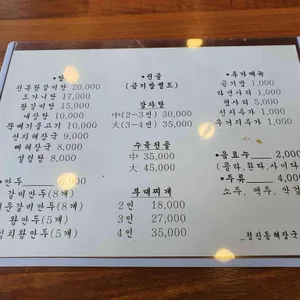 •탕
전복왕갈비탕 20,000
도가니탕 17,000
왕갈비탕 15,000
내장탕 10,000
뚝배기불고기 10,000
선지해장국 9,000
뼈해장국 8,000
설렁탕 8,000
•만두
갈비만두(8개)
매운갈비만두(8개)
왕만두(5개)
김치왕만두(5개)
•전골
(공기밥별도)
감자탕
中(2~3인) 30,000
大(3~4인) 35,000
수육전골
中 35,000
大 45,000
부대찌개
2인 18,000
3인 27,000
4인 35,000
•추가메뉴
공기밥 1,000
라면사리 1,000
떡사리 2,000
선지추가
우거지추가 1,000
•음료수 2,000
(콜라,환타,사이다
•주류 4,000
소주, 맥주, 막걸
청진동해장국